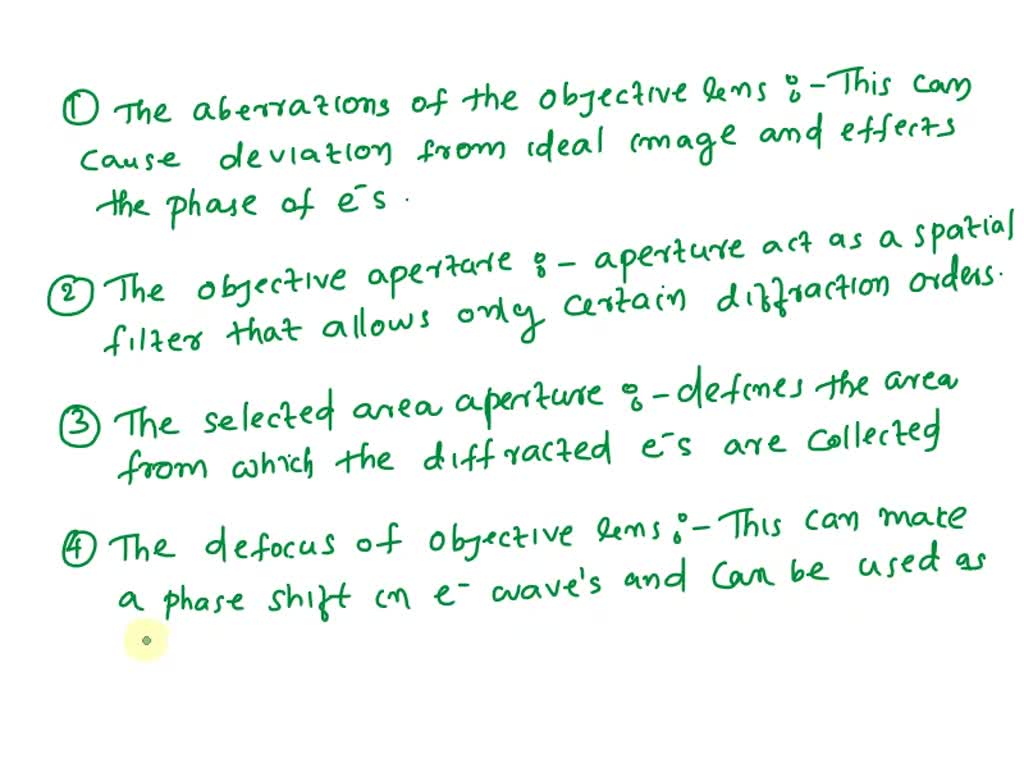 ① The aberrations of the objective lens :- This can
cause deviation from ideal image and effects
the phase of e⁻s.
② The objective aperture :- aperture act as a spatial
filter that allows only certain diffraction orders.
③ The selected area aperture :- defines the area
from which the diffracted e⁻s are collected
④ The defocus of objective lens :- This can make
a phase shift in e⁻ wave's and can be used as